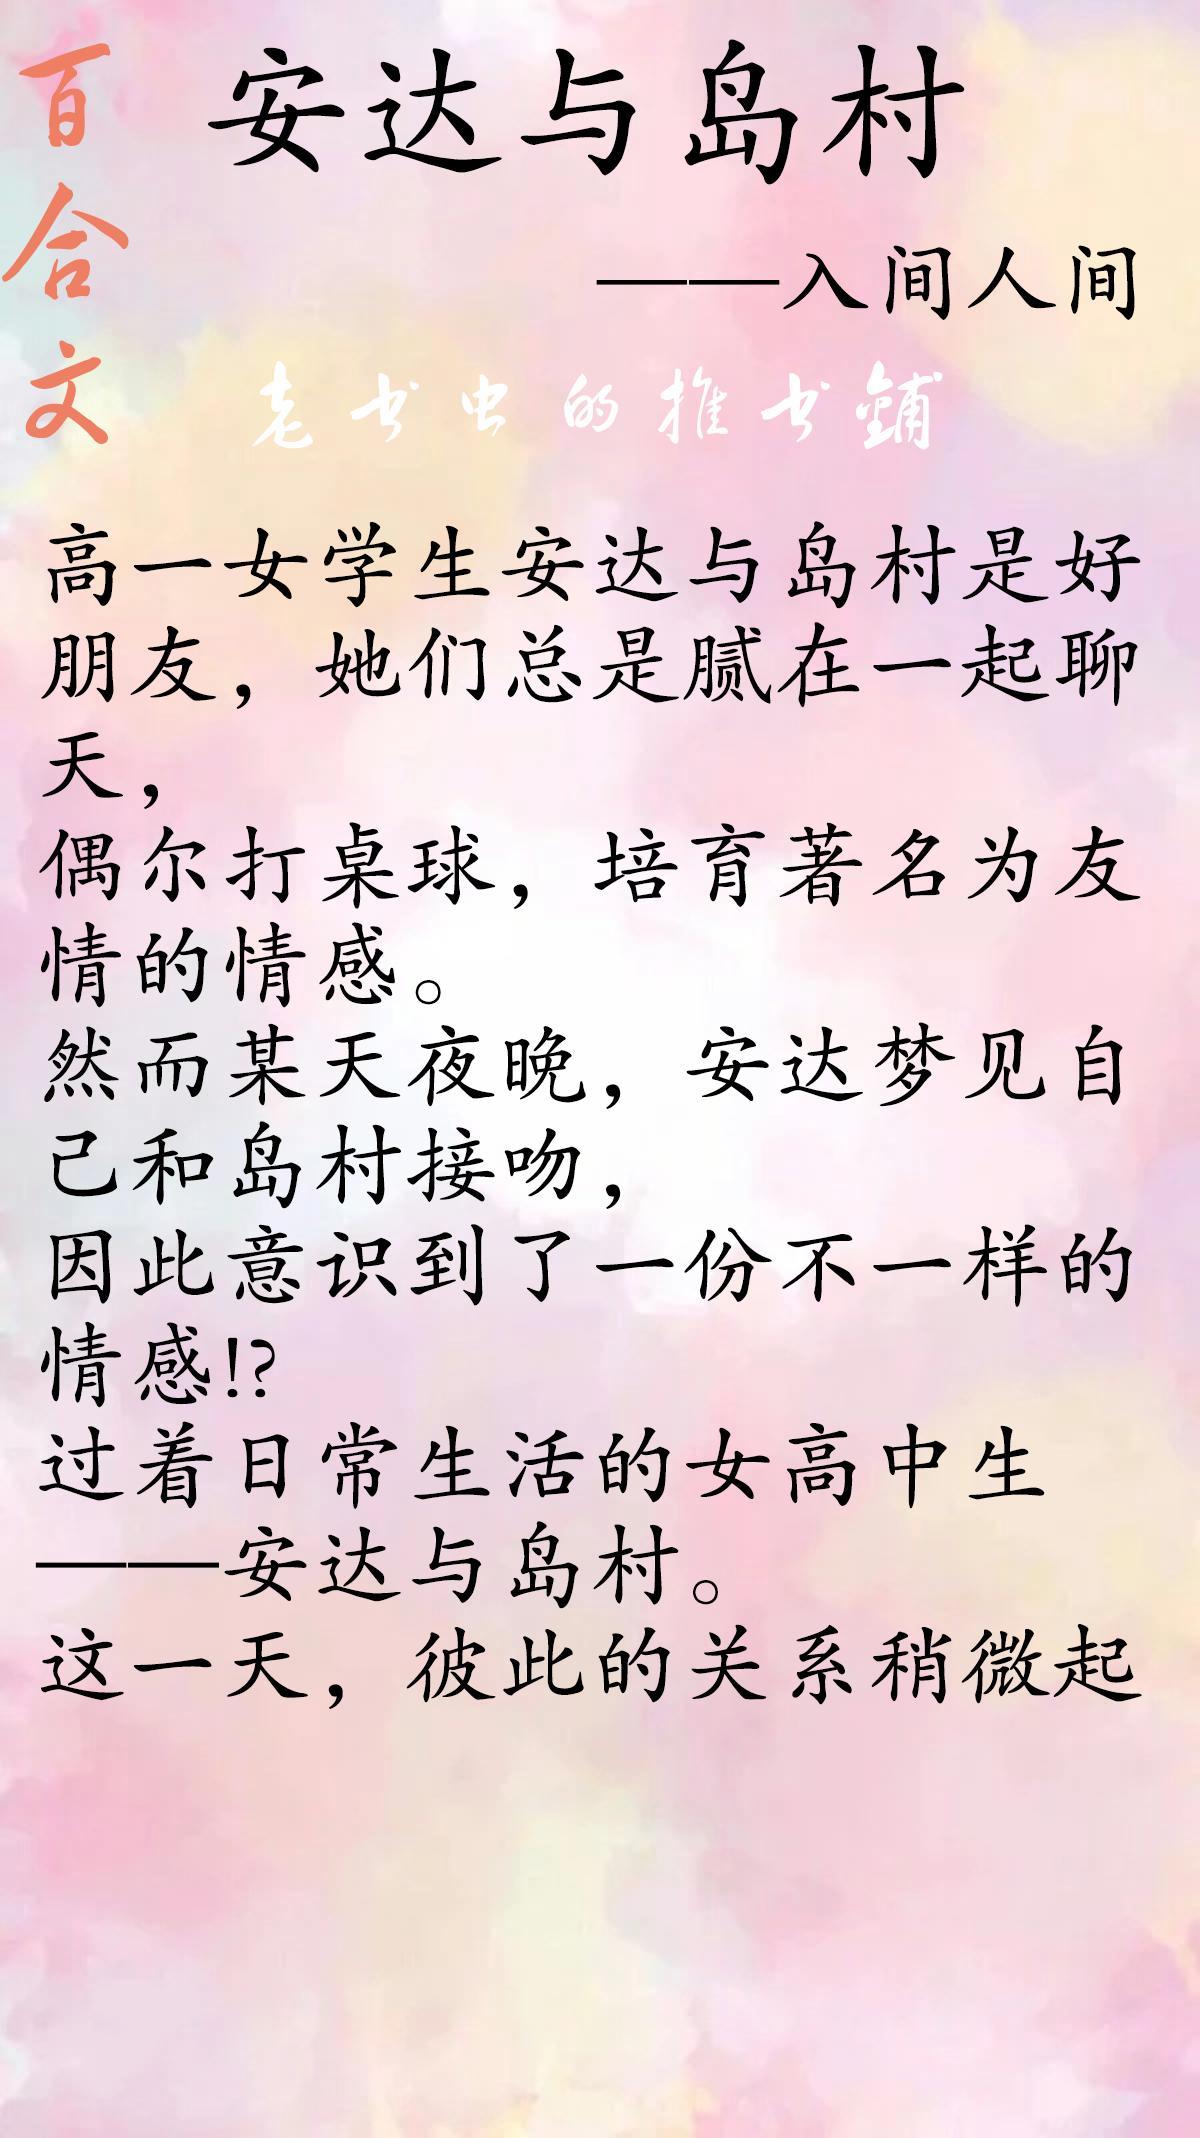 百合文
安达与岛村
——入间人间
老书虫的推书鋪
高一女学生安达与岛村是好
朋友，她们总是腻在一起聊
天，
偶尔打桌球，培育著名为友
情的情感。
然而某天夜晚，安达梦见自
己和岛村接吻，
因此意识到了一份不一样的
情感!?
过着日常生活的女高中生
——安达与岛村。
这一天，彼此的关系稍微起